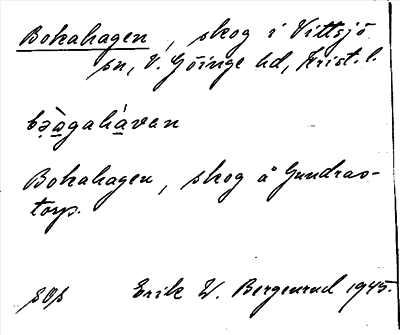 Bokahagen, skog i Vittsjö
sn, V. Göinge hd, Krist. l.
bo̯àgahávan
Bokahagen, skog å Gundras-
torp.
sos Erik W. Bergenrud 1945.